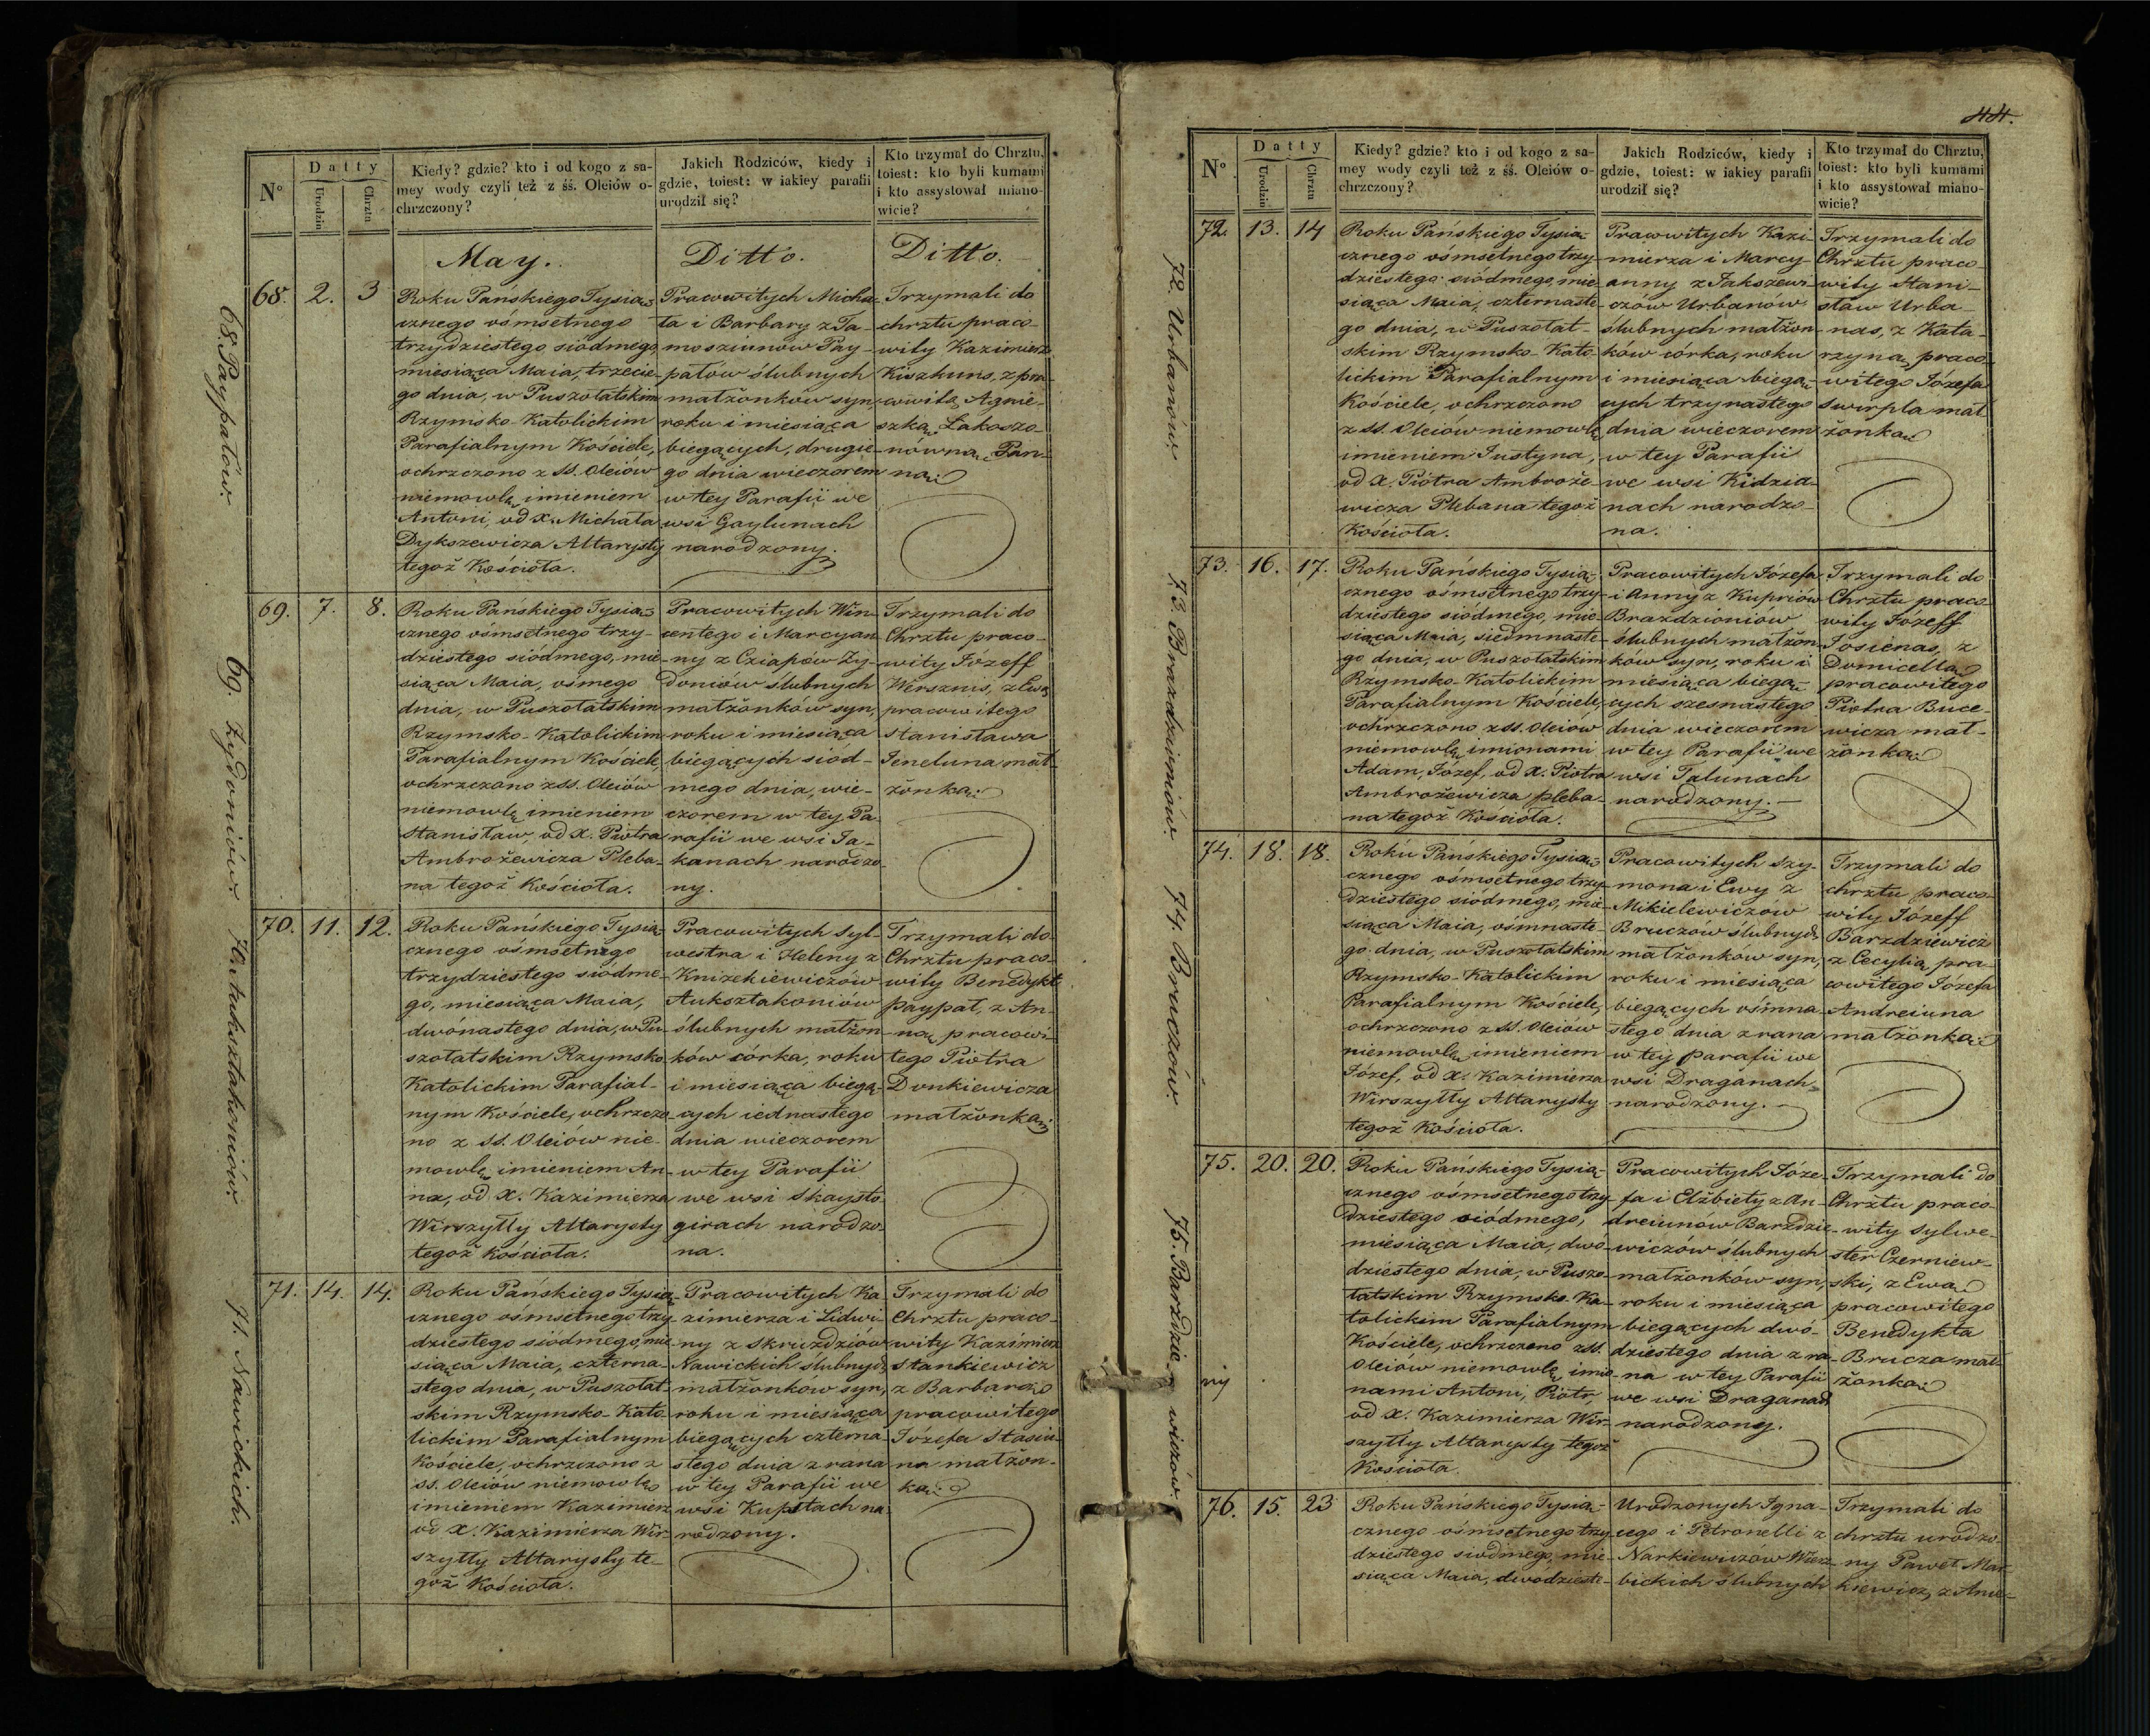 44.
Nº
Datty
Urodzin
Chrztu
Kiedy? gdzie? kto i od kogo z sa-
mey wody czyli też z śś. Oleiów o-
chrzczony?
Jakich Rodziców, kiedy i
gdzie, toiest: w iakiey parafii
urodził się?
Kto trzymał do Chrztu,
toiest: kto byli kumami
i kto assystował miano-
wicie?
May.
Ditto.
Ditto.
68. Paypałów.
68.
2.
3
Roku Pańskiego Tysią-
cznego ośmsetnego
trzydziestego siódmego,
miesiąca Maia, trzecie-
go dnia, w Puszołatskim
Rzymsko-Katolickim
Parafialnym Kościele,
ochrzczono z SS. Oleiów
niemowlę imieniem
Antoni, od X. Michała
Dykszewicza Altarysty
tegoż Kościoła.
Pracowitych Micha-
ła i Barbary z Ta-
mosziunów Pay-
pałów ślubnych
małżonków syn,
roku i miesiąca
biegących, drugie-
go dnia wieczorem
w tey Parafii we
wsi Gaylunach
narodzony.
Trzymali do
chrztu praco-
wity Kazimierz
Kiszkuns, z pra-
cowitą Agnie-
szką Łakoszo-
nówną Pan-
ną.
69. Żydoniów
69.
7.
8.
Roku Pańskiego Tysią-
cznego ośmsetnego trzy-
dziestego siódmego, mie-
siąca Maia, ośmego
dnia, w Puszołatskim
Rzymsko-Katolickim
Parafialnym Kościele
ochrzczono z SS. Oleiów
niemowlę imieniem
Stanisław, od X. Piotra
Ambrożewicza Pleba-
na tegoż Kościoła.
Pracowitych Win-
centego i Marcyan-
ny z Cziapów Ży-
doniów ślubnych
małżonków syn,
roku i miesiąca
biegących siód-
mego dnia, wie-
czorem w tey Pa-
rafii we wsi Ja-
kanach narodzo-
ny.
Trzymali do
Chrztu praco-
wity Józeff
Wersznis, z Ewą
pracowitego
Stanisława
Jeneluna mał-
żonką.
70.
11.
12.
Roku Pańskiego Tysią-
cznego ośmsetnego
trzydziestego siódme-
go, miesiąca Maia,
dwónastego dnia, w Pu-
szołatskim Rzymsko
Katolickim Parafial-
nym Kościele, ochrzczo-
no z SS. Oleiów nie-
mowlę imieniem An-
na, od X. Kazimierza
Wirszyłły Altarysty
tegoż Kościoła.
Pracowitych Syl-
westra i Heleny z
Knizekiewiczów
Aukształkoniów
ślubnych małżon-
ków córka, roku
i miesiąca biegą-
cych iednastego
dnia wieczorem
w tey Parafii
we wsi Skaysto-
girach narodzo-
na.
Trzymali do
Chrztu praco-
wity Benedykt
Paypał, z An-
ną pracowi-
tego Piotra
Donkiewicza
małżonką.
71. Nawickich.
71.
14.
14.
Roku Pańskiego Tysią-
cznego ośmsetnego trzy-
dziestego siódmego, mie-
siąca Maia, czterna-
stego dnia, w Puszołat-
skim Rzymsko-Kato-
lickim Parafialnym
Kościele, ochrzczono z
SS. Oleiów niemowlę
imieniem Kazimierz
od X. Kazimierza Wir-
szyłły Altarysty te-
goż Kościoła.
Pracowitych Ka-
zimierza i Lidwi-
ny z Skruzdziów
Nawickich ślubnych
małżonków syn,
roku i miesiąca
biegących czterna-
stego dnia z rana
w tey Parafii we
wsi Kupstach na-
rodzony.
Trzymali do
Chrztu praco-
wity Kazimierz
Stankiewicz
z Barbarą
pracowitego
Józefa Stasiu-
na małżon-
ką.
Nº
Datty
Urodzin
Chrztu
Kiedy? gdzie? kto i od kogo z sa-
mey wody czyli też z śś. Oleiów o-
chrzczony?
Jakich Rodziców, kiedy i
gdzie, toiest: w iakiey parafii
urodził się?
Kto trzymał do Chrztu,
toiest: kto byli kumami
i kto assystował miano-
wicie?
72. Urbanów
72.
13.
14
Roku Pańskiego Tysią-
cznego ośmsetnego trzy-
dziestego siódmego, mie-
siąca Maia, czternaste-
go dnia, w Puszołat-
skim Rzymsko-Kato-
lickim Parafialnym
Kościele, ochrzczono
z SS. Oleiów niemowlę
imieniem Justyna,
od X. Piotra Ambroże-
wicza Plebana tegoż
Kościoła.
Pracowitych Kazi-
mierza i Marcy-
anny z Jakszewi-
czów Urbanów
ślubnych małżon-
ków córka, roku
i miesiąca biegą-
cych trzynastego
dnia wieczorem
w tey Parafii
we wsi Kidzia-
nach narodzo-
na.
Trzymali do
Chrztu praco-
wity Stani-
sław Urba-
nas, z Kata-
rzyną praco-
witego Józefa
Swirpla mał-
żonką.
73. Brazdzioniów.
73.
16.
17.
Roku Pańskiego Tysią-
cznego ośmsetnego trzy-
dziestego siódmego, mie-
siąca Maia, siedmnaste-
go dnia, w Puszołatskim
Rzymsko-Katolickim
Parafialnym Kościele,
ochrzczono z SS. Oleiów
niemowlę imionami
Adam, Józef, od X. Piotra
Ambrożewicza pleba-
na tegoż Kościoła.
Pracowitych Józefa
i Anny z Kupriów
Brazdzioniów
ślubnych małżon-
ków syn, roku i
miesiąca biegą-
cych szesnastego
dnia wieczorem
w tey Parafii we
wsi Talunach
narodzony.
Trzymali do
Chrztu praco-
wity Józeff
Josienas, z
Domicellą
pracowitego
Piotra Buce-
wicza mał-
żonką.
74. Bruczów.
74.
18.
18.
Roku Pańskiego Tysią-
cznego ośmsetnego trzy-
dziestego siódmego, mie-
siąca Maia, ośmnaste-
go dnia, w Puszołatskim
Rzymsko-Katolickim
Parafialnym Kościele,
ochrzczono z SS. Oleiów
niemowlę imieniem
Józef, od X. Kazimierza
Wirszyłły Altarysty
tegoż Kościoła.
Pracowitych Szy-
mona i Ewy z
Mikielewiczów
Bruczów ślubnych
małżonków syn,
roku i miesiąca
biegących ośmna-
stego dnia z rana
w tey parafii we
wsi Draganach
narodzony.
Trzymali do
chrztu praco-
wity Józeff
Barzdziewicz
z Cecylią pra-
cowitego Józefa
Andreiuna
małżonką.
75. Barzdzie-wiczów
75.
20.
20.
Roku Pańskiego Tysią-
cznego ośmsetnego trzy-
dziestego siódmego,
miesiąca Maia, dwó-
dziestego dnia, w Puszo-
łatskim Rzymsko-Ka-
tolickim Parafialnym
Kościele, ochrzczono z SS.
Oleiów niemowlę imio-
nami Antoni, Piotr,
od X. Kazimierza Wir-
szyłły Altarysty tegoż
Kościoła
Pracowitych Józe-
fa i Elżbiety z An-
dreiunów Barzdzie-
wiczów ślubnych
małżonków syn,
roku i miesiąca
biegących dwó-
dziestego dnia z ra-
na w tey Parafii
we wsi Draganach
narodzony.
Trzymali do
Chrztu praco-
wity Sylwe-
ster Czerniew-
ski, z Ewą
pracowitego
Benedykta
Brucza mał-
żonką.
76.
15.
23
Roku Pańskiego Tysią-
cznego ośmsetnego trzy-
dziestego siódmego, mie-
siąca Maia, dwodzieste-
Urodzonych Igna-
cego i Petronelli z
Narkiewiczów Wierz-
bickich ślubnych
Trzymali do
chrztu urodzo-
ny Paweł Mac-
kiewicz, z Anie-